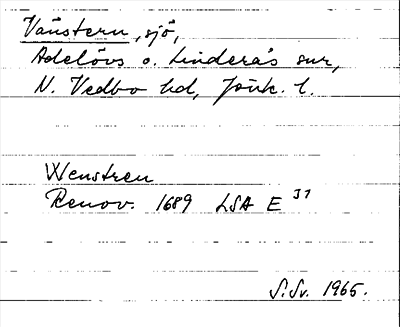 Vänstern, sjö,
Adelövs o. Linderås snr,
N. Vedbo hd, Jönk. l.
Wenstren
Renov. 1689 LSA E 31
S.Sv. 1965.